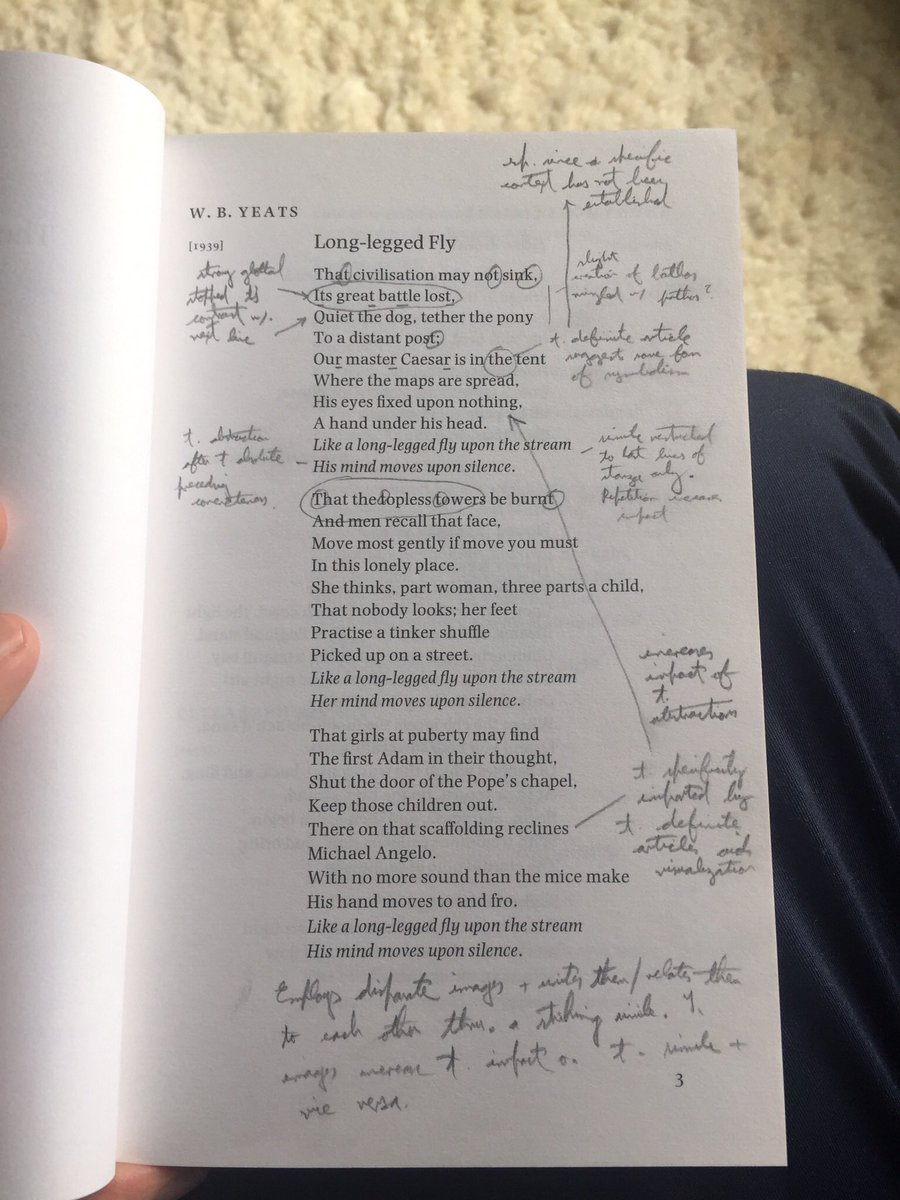 esp. since a specific
context has not been
established
W. B. YEATS
[1939]
Long-legged Fly
strong glottal
stopped
contrast w.
next line
slight
of bathos
mingled w/ pathos?
t. definite article
suggests some
of symbolism
That civilisation may not sink,
Its great battle lost,
Quiet the dog, tether the pony
To a distant post;
Our master Caesar is in the tent
Where the maps are spread,
His eyes fixed upon nothing,
A hand under his head.
Like a long-legged fly upon the stream
His mind moves upon silence.
t. abstraction
after t absolute
preceding
concreteness
simile restricted
to last lines of
stanza only.
Repetition
impact
That the topless towers be burnt
And men recall that face,
Move most gently if move you must
In this lonely place.
She thinks, part woman, three parts a child,
That nobody looks; her feet
Practise a tinker shuffle
Picked up on a street.
Like a long-legged fly upon the stream
Her mind moves upon silence.
increases
impact of
t.
abstractions
That girls at puberty may find
The first Adam in their thought,
Shut the door of the Pope's chapel,
Keep those children out.
There on that scaffolding reclines
Michael Angelo.
With no more sound than the mice make
His hand moves to and fro.
Like a long-legged fly upon the stream
His mind moves upon silence.
t specificity
imparted by
t. definite
articles aids
visualization
Employs disparate images + unites them/relates them
to each other thru. a striking simile. T.
images increase t. impact o. t. simile +
vice versa.
3